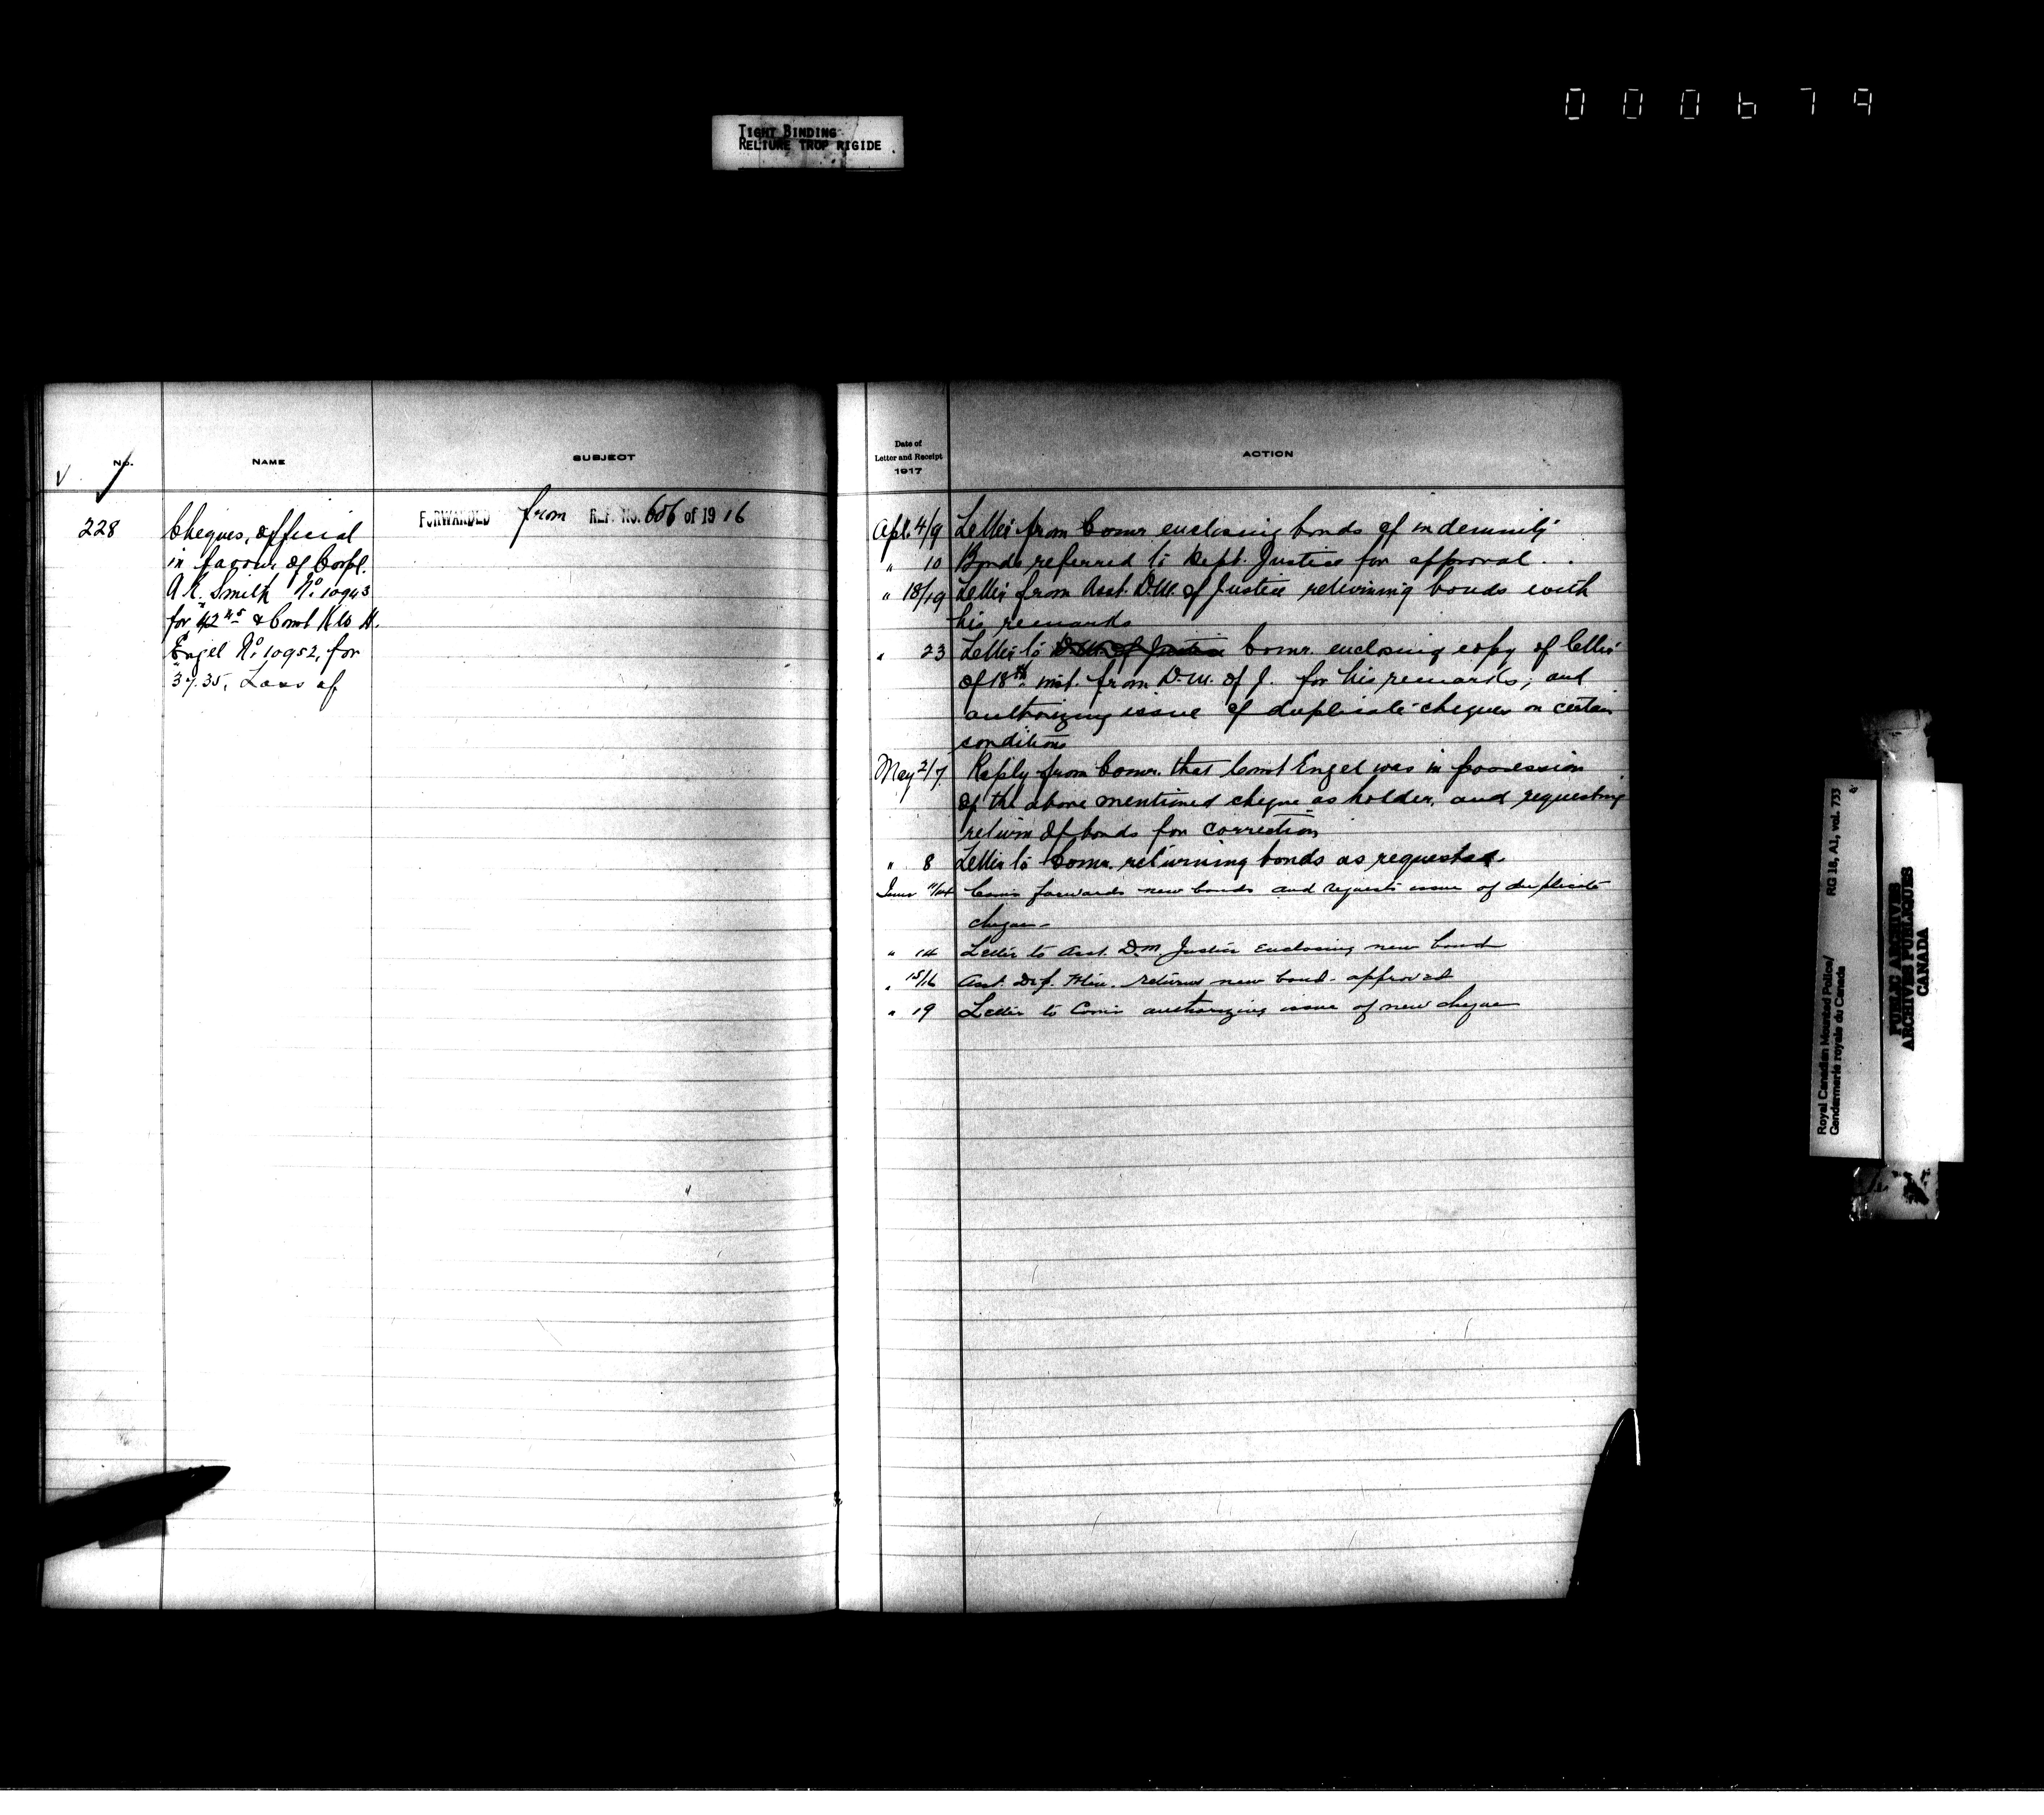 000679
TIGHT BINDING
RELIURE TROP RIGIDE
No.
NAME
SUBJECT
228
Cheques, official
in favour of Corpl.
A.R. Smith No. 10943
for 42 & Const K W H.
Engel No. 10952, for
37.35, Loss of
FORWARDED from REF. NO. 606 of 19 16
Date of
Letter and Receipt
1917
ACTION
Apl. 4/9 Letter from Comr. enclosing bonds of indemnity
" 10 Bonds referred to Dept. Justice for approval . .
" 18/19 Letter from Asst. D.M. of Justice returning bonds with
his remarks
" 23 Letter to D.M. of Justice Comr. enclosing copy of letter
of 18th inst. from D.M. of J. for his remarks; and
authorizing issue of duplicate cheques on certain
conditions
May 2/7 Reply from Comr. that Const Engel was in possession
of the above mentioned cheque as holder, and requesting
return of bonds for correction
" 8 Letter to Comr. returning bonds as requested.
June 11/14 Comr forwards new bonds and requests issue of duplicate
cheque -
" 14 Letter to Asst. D.M. Justice enclosing new bond
" 15/16 Asst. Dep. Min. returns new bond - approved
" 19 Letter to Comr authorizing issue of new cheque
Royal Canadian Mounted Police/
Gendarmerie royale du Canada
RG 18, A1, vol. 733
PUBLIC ARCHIVES
ARCHIVES PUBLIQUES
CANADA